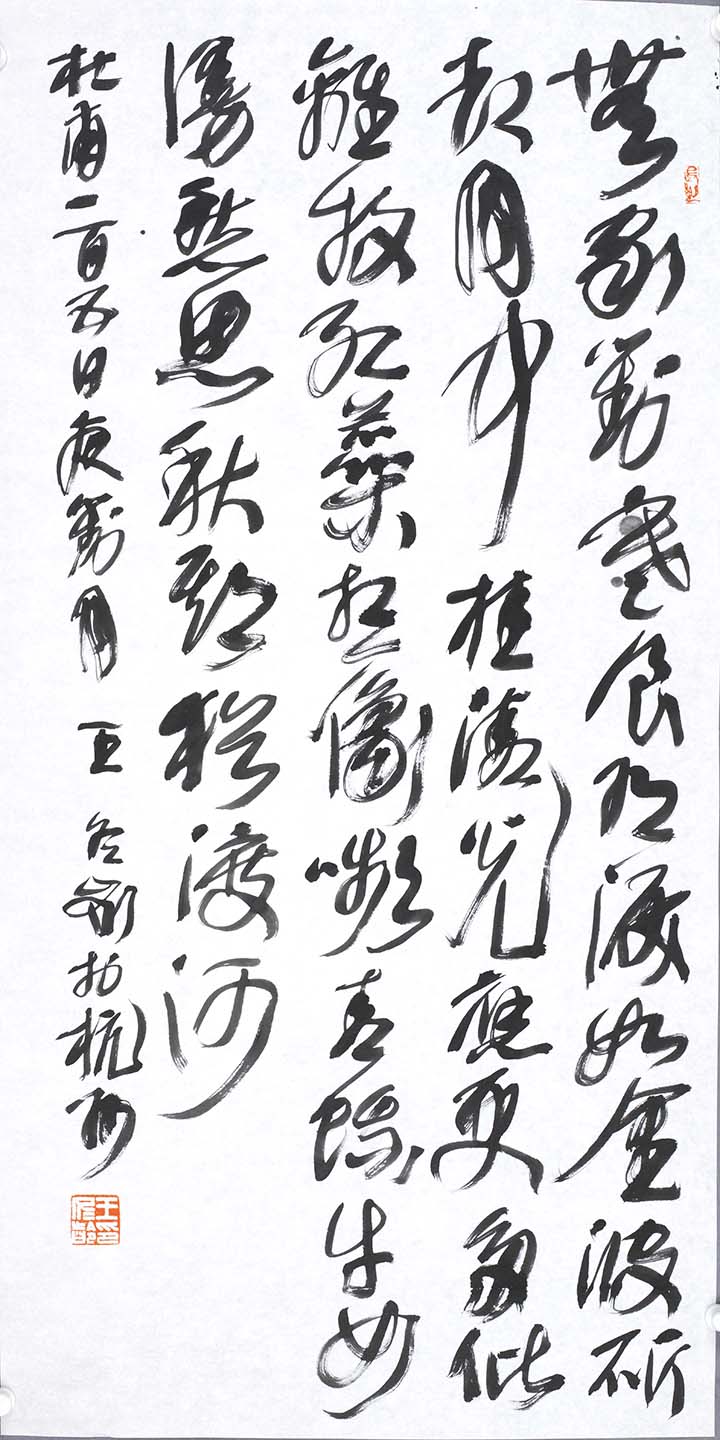 無家對寒食有淚如金波斫
却月中桂清光應更多仳
離放紅蘂想像嚬青蛾牛女
漫愁思秋期猶渡河
杜甫一百五日夜對月 王冬齡於杭州
王印冬齡